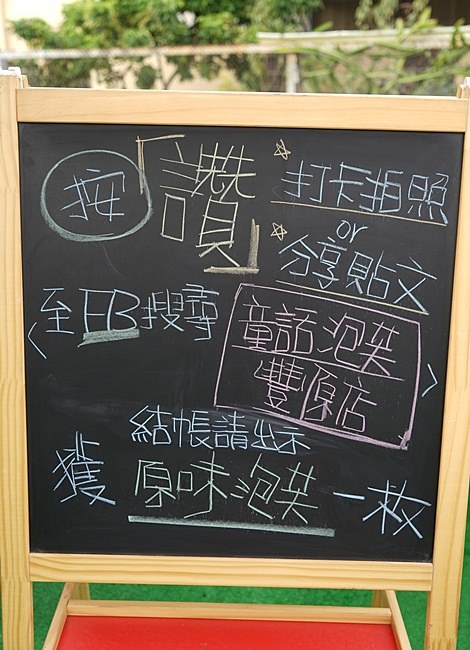 按「讚」
☆打卡拍照
or
☆分享貼文
至FB搜尋
〈童話泡芙
豐原店〉
結帳請出示
獲原味泡芙一枚